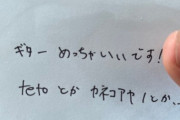 ギターめっちゃいいです!
tetoとかカネコアヤノとか..